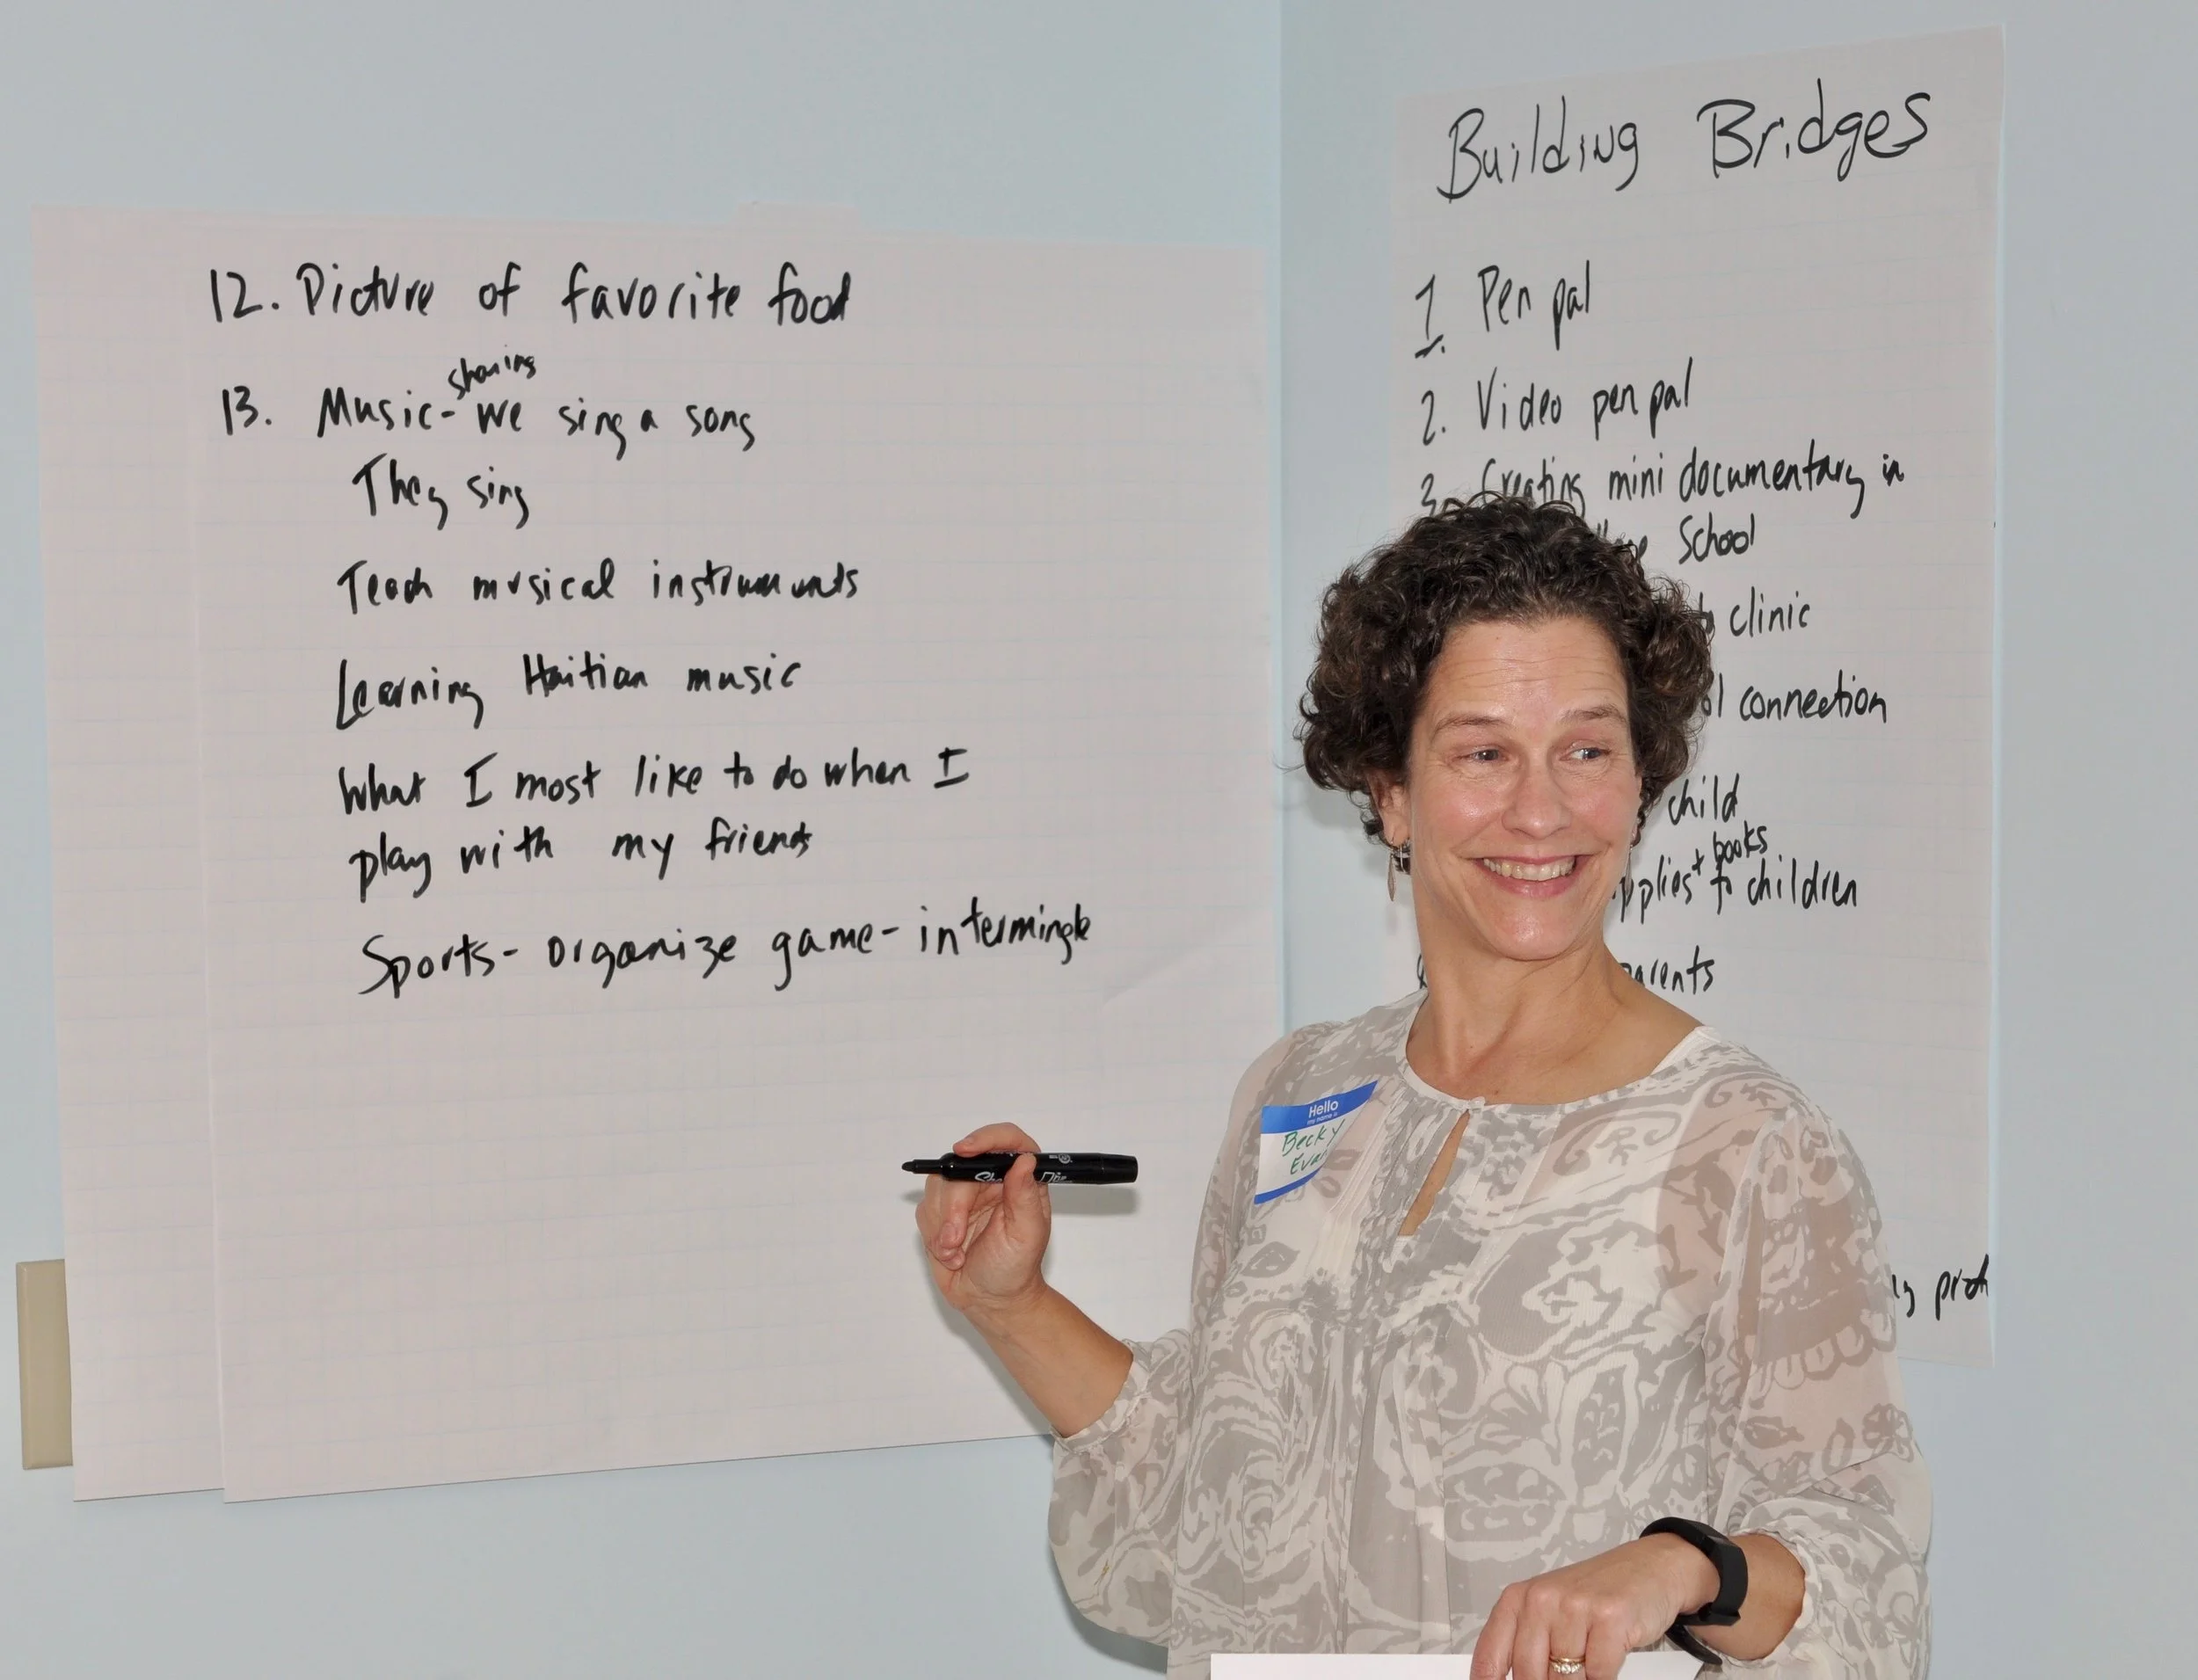 12. Picture of favorite food
sharing
13. Music - we sing a song
They sing
Teach musical instruments
Learning Haitian music
What I most like to do when I
play with my friends
Sports - organize game - intermingle
Building Bridges
1. Pen pal
2. Video pen pal
3. Creating mini documentary in
School
clinic
connection
child
+ books
to children
Hello
my name is
Becky